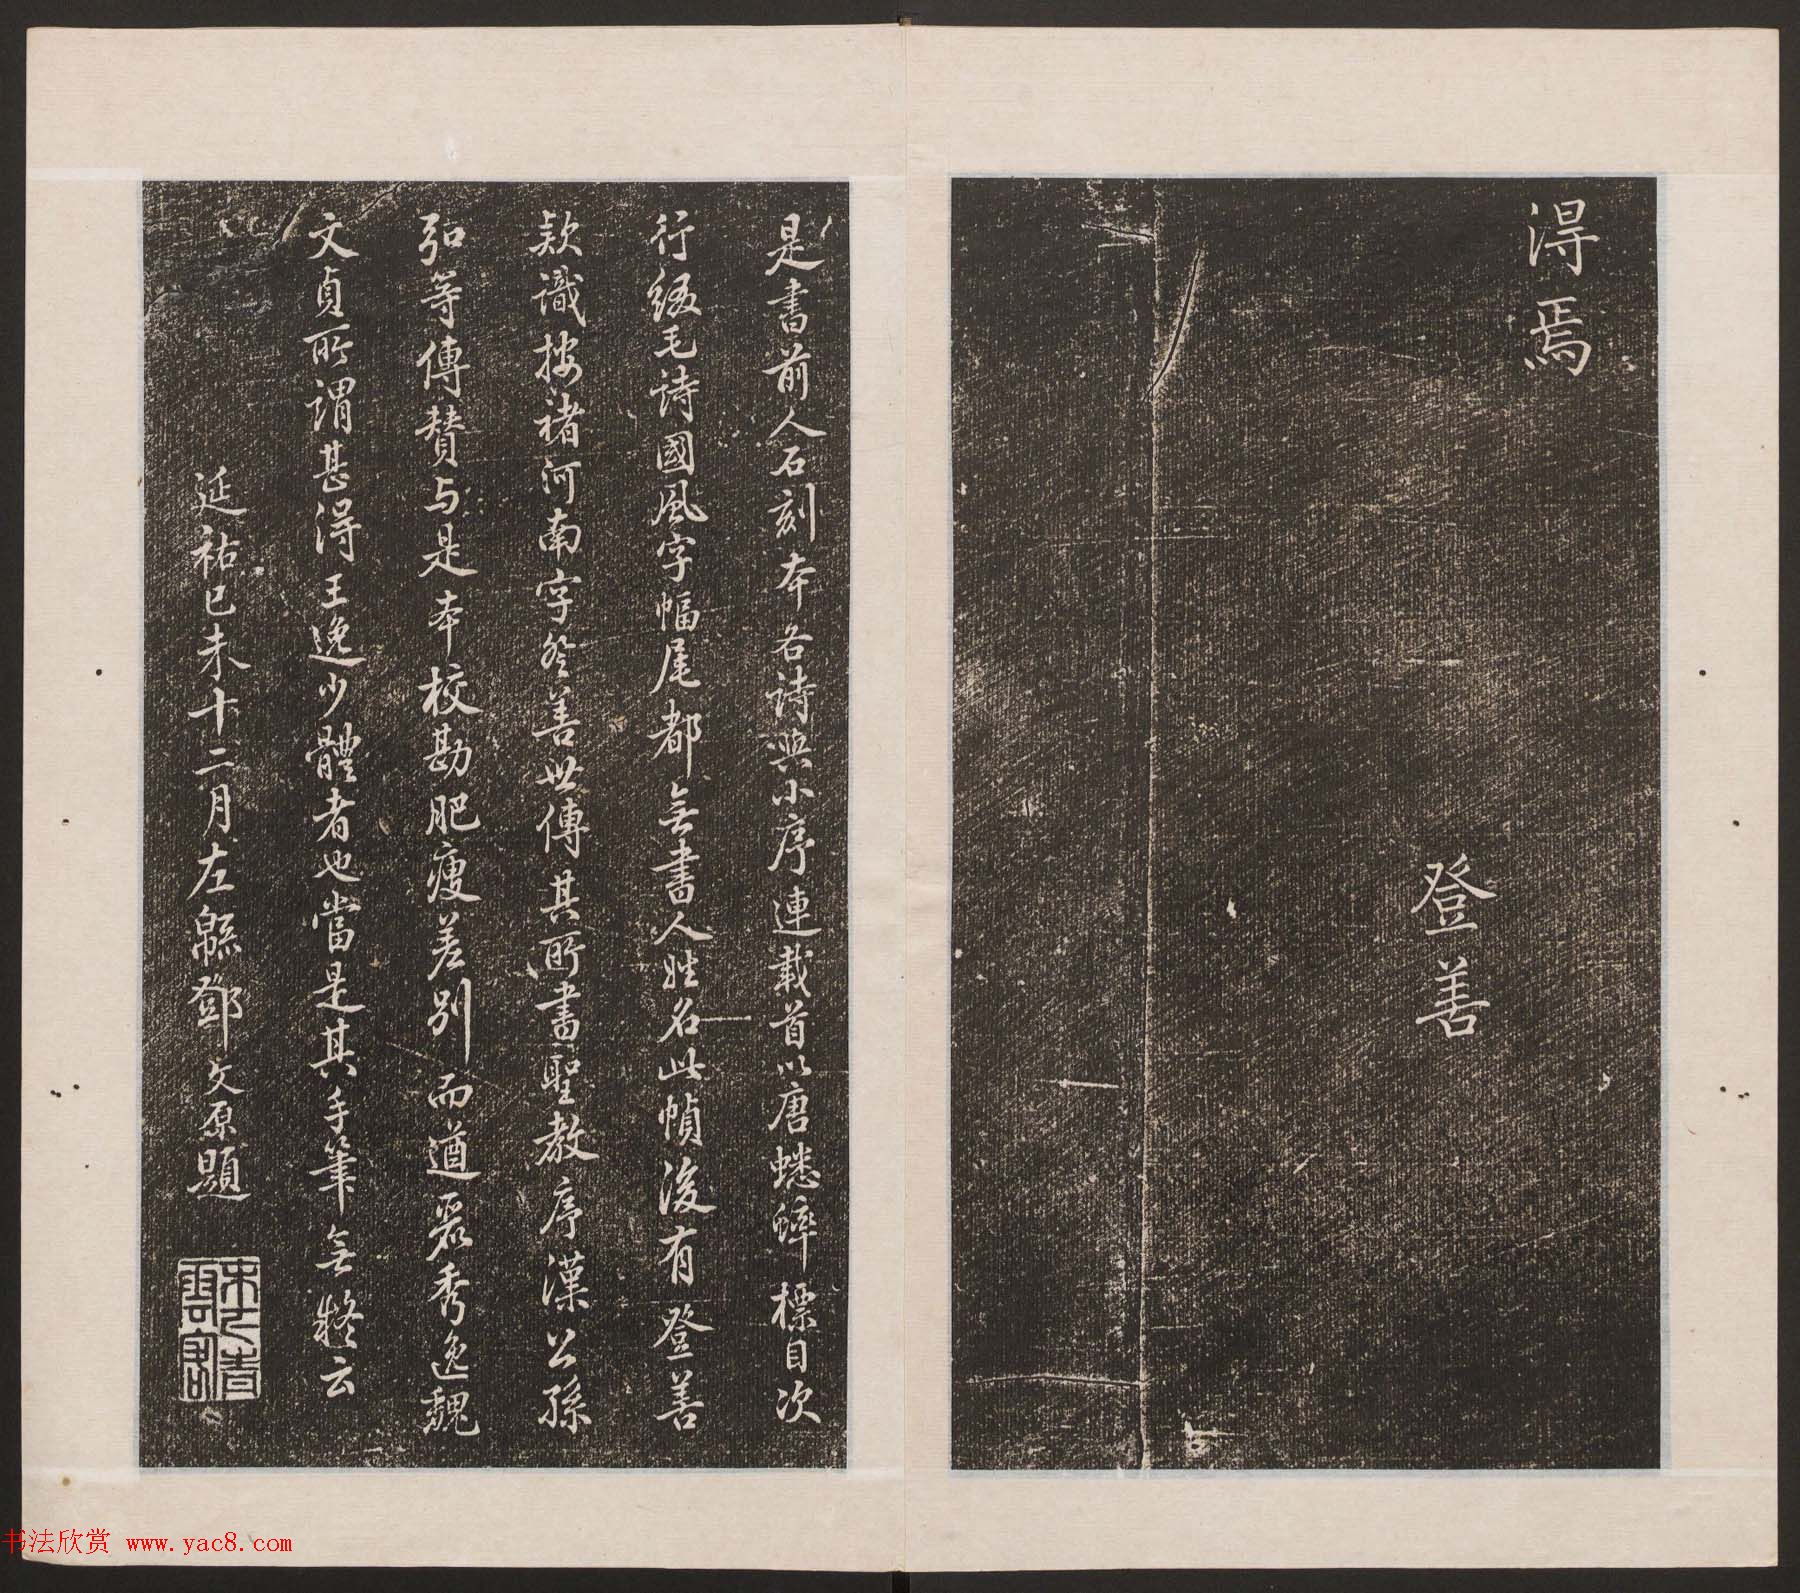 得焉
登善
是書前人石刻本各詩與小序連載首以唐蟋蟀標目次
行綴毛詩國風字幅尾都無書人姓名此幀後有登善
款識按褚河南字登善世傳其所書聖教序漢公孫
弘等傳贊与是本校勘肥瘦差別而遒麗秀逸魏
文貞所謂甚得王逸少體者也當是其手筆無疑云
延祐己未十二月左緜鄧文原題
书法欣赏 www.yac8.com